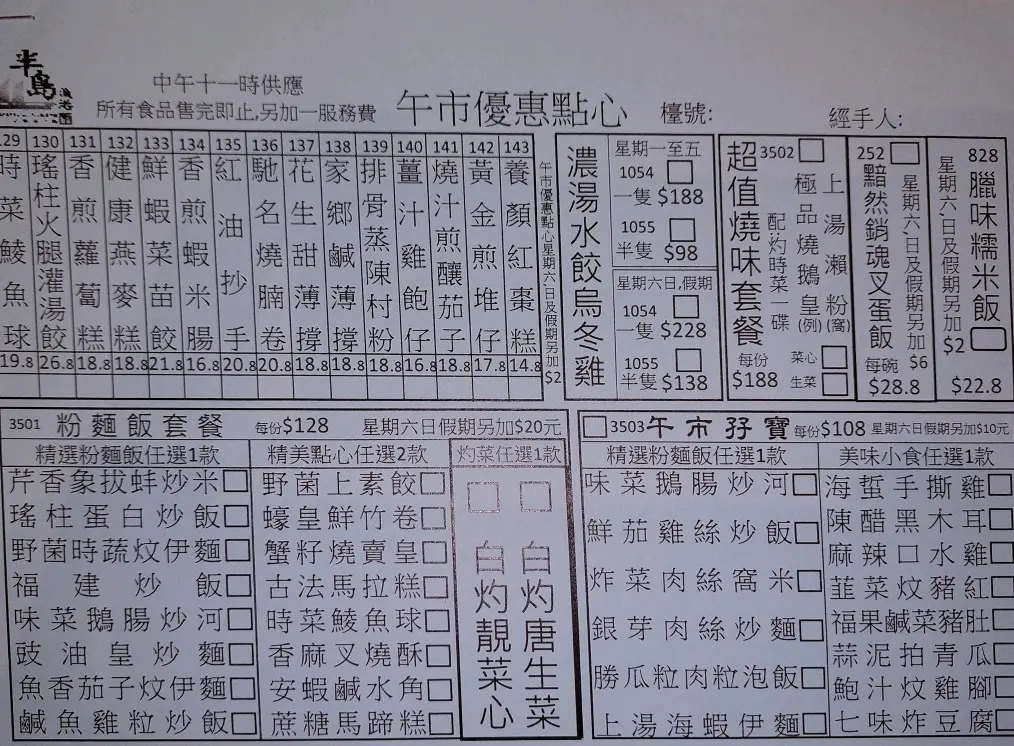 半島
漁港
中午十一時供應
所有食品售完即止,另加一服務費
午市優惠點心
檯號:
經手人:
129 時菜鯪魚球 19.8
130 瑤柱火腿灌湯餃 26.8
131 香煎蘿蔔糕 18.8
132 健康燕麥糕 18.8
133 鮮蝦菜苗餃 21.8
134 香煎蝦米腸 16.8
135 紅油抄手 20.8
136 馳名燒腩卷 20.8
137 花生甜薄撐 18.8
138 家鄉鹹薄撐 18.8
139 排骨蒸陳村粉 18.8
140 薑汁雞飽仔 16.8
141 燒汁煎釀茄子 18.8
142 黃金煎堆仔 17.8
143 養顏紅棗糕 14.8
午市優惠點心星期六日及假期另加$2
濃湯水餃烏冬雞
星期一至五
1054
一隻 $188
1055
半隻 $98
星期六日,假期
1054
一隻 $228
1055
半隻 $138
超值燒味套餐
3502
上湯瀨粉(窩)
極品燒鵝皇(例)
配灼時菜一碟
每份
$188
菜心
生菜
252
黯然銷魂叉蛋飯
星期六日及假期另加$6
每碗
$28.8
828
臘味糯米飯
星期六日及假期另加$2
$22.8
3501 粉麵飯套餐 每份$128 星期六日假期另加$20元
精選粉麵飯任選1款
芹香象拔蚌炒米
瑤柱蛋白炒飯
野菌時蔬炆伊麵
福建炒飯
味菜鵝腸炒河
豉油皇炒麵
魚香茄子炆伊麵
鹹魚雞粒炒飯
精美點心任選2款
野菌上素餃
蠔皇鮮竹卷
蟹籽燒賣皇
古法馬拉糕
時菜鯪魚球
香麻叉燒酥
安蝦鹹水角
蔗糖馬蹄糕
灼菜任選1款
白灼靚菜心
白灼唐生菜
3503 午市孖寶 每份$108 星期六日假期另加$10元
精選粉麵飯任選1款
味菜鵝腸炒河
鮮茄雞絲炒飯
炸菜肉絲窩米
銀芽肉絲炒麵
勝瓜粒肉粒泡飯
上湯海蝦伊麵
美味小食任選1款
海蜇手撕雞
陳醋黑木耳
麻辣口水雞
韮菜炆豬紅
福果鹹菜豬肚
蒜泥拍青瓜
鮑汁炆雞腳
七味炸豆腐